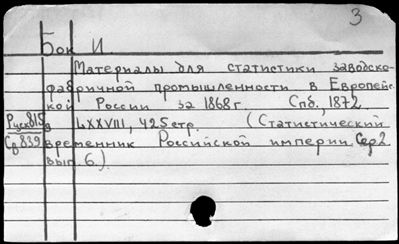 3
Бок И.
Материалы для статистики заводско-
фабричной промышленности в Европейс-
кой России за 1868 г. Спб., 1872.
Руск815 LXXVIII, 425 стр. (Статистический
Сд839 временник Российской империи Сер 2
вып. 6.)